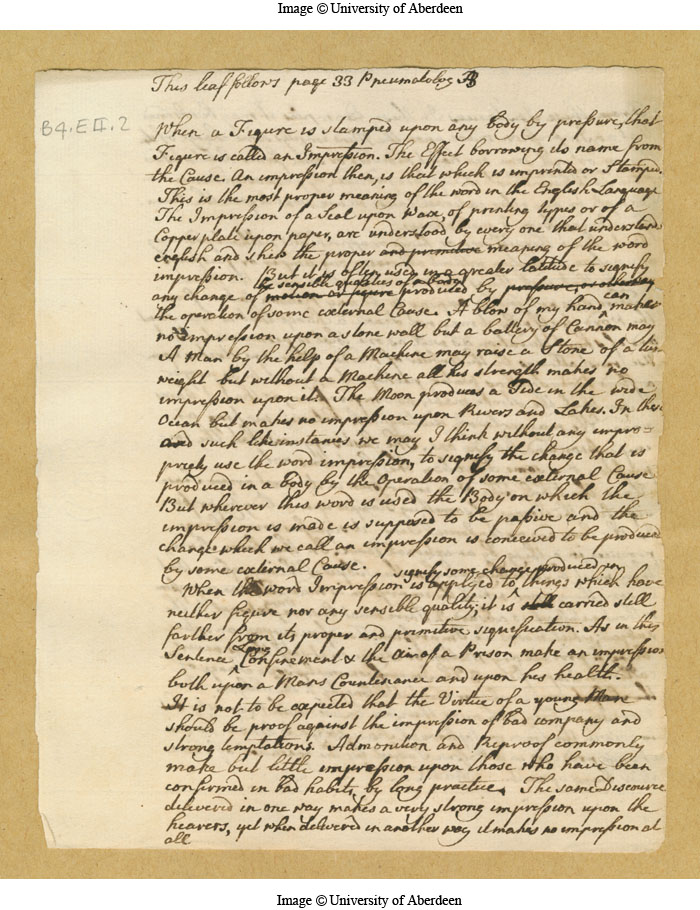 Image © University of Aberdeen
This leaf follows page 33 Pneumatology
B4.EII.2
When a Figure is stamped upon any body by pressure, that
Figure is called an Impression. The Effect borrowing its name from
the Cause. An impression then, is that which is imprinted or Stamped.
This is the most proper meaning of the word in the English Language
The Impression of a Seal upon Wax, of printing types or of a
Copper plate upon paper, are understood by every one that understands
english and shew the proper and primitive meaning of the word
impression. But it is often used in a greater latitude to signify
the sensible qualities of a body
any change of motion or figure produced by pressure, or otherway
the operation of some external Cause. A blow of my hand makes
can
no impression upon a stone wall but a battery of Cannon may
A Man by the help of a Machine may raise a Stone of a tun
weight but without a Machine all his strength makes no
impression upon it. The Moon produces a Tide in the wide
Ocean but makes no impression upon Rivers and Lakes. In these
and such like instances we may I think without any impro-
priety use the word impression, to signify the change that is
produced in a body by the Operation of some external Cause
But wherever this word is used the Body on which the
impression is made is supposed to be passive and the
change which we call an impression is conceived to be produced
by some external Cause.
signify some change produced on
When the word Impression is applyed to things which have
neither figure nor any sensible quality, it is still carried still
farther from its proper and primitive signification. As in this
Sentence Long Confinement & the air of a Prison make an impression
both upon a Mans Countenance and upon his health.
It is not to be expected that the Virtue of a young Man
should be proof against the impression of bad company and
strong temptations. Admonition and Reproof commonly
make but little impression upon those who have been
confirmed in bad habits by long practice. The same Discourse
delivered in one way makes a very strong impression upon the
hearers, yet when delivered in another way it makes no impression at
all
Image © University of Aberdeen